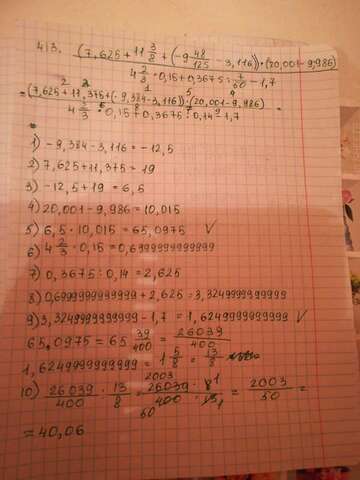 413. (7,625+11 3/8+(-9 48/125-3,116))·(20,001-9,986)
4 2/3·0,15+0,3675:7/50-1,7
=(7,625+11,375+(-9,384-3,116))·(20,001-9,986)=
4 2/3·0,15+0,3675:0,14-1,7
1) -9,384-3,116=-12,5
2) 7,625+11,375=19
3) -12,5+19=6,5
4) 20,001-9,986=10,015
5) 6,5·10,015=65,0975 V
6) 4 2/3·0,15=0,6999999999999
7) 0,3675:0,14=2,625
8) 0,6999999999999+2,625=3,3249999999999
9) 3,3249999999999-1,7=1,6249999999999 V
65,0975=65 39/400=26039/400
1,6249999999999=1 5/8=13/8
10) 26039/400:13/8=26039·8/400·13=2003/50=
=40,06